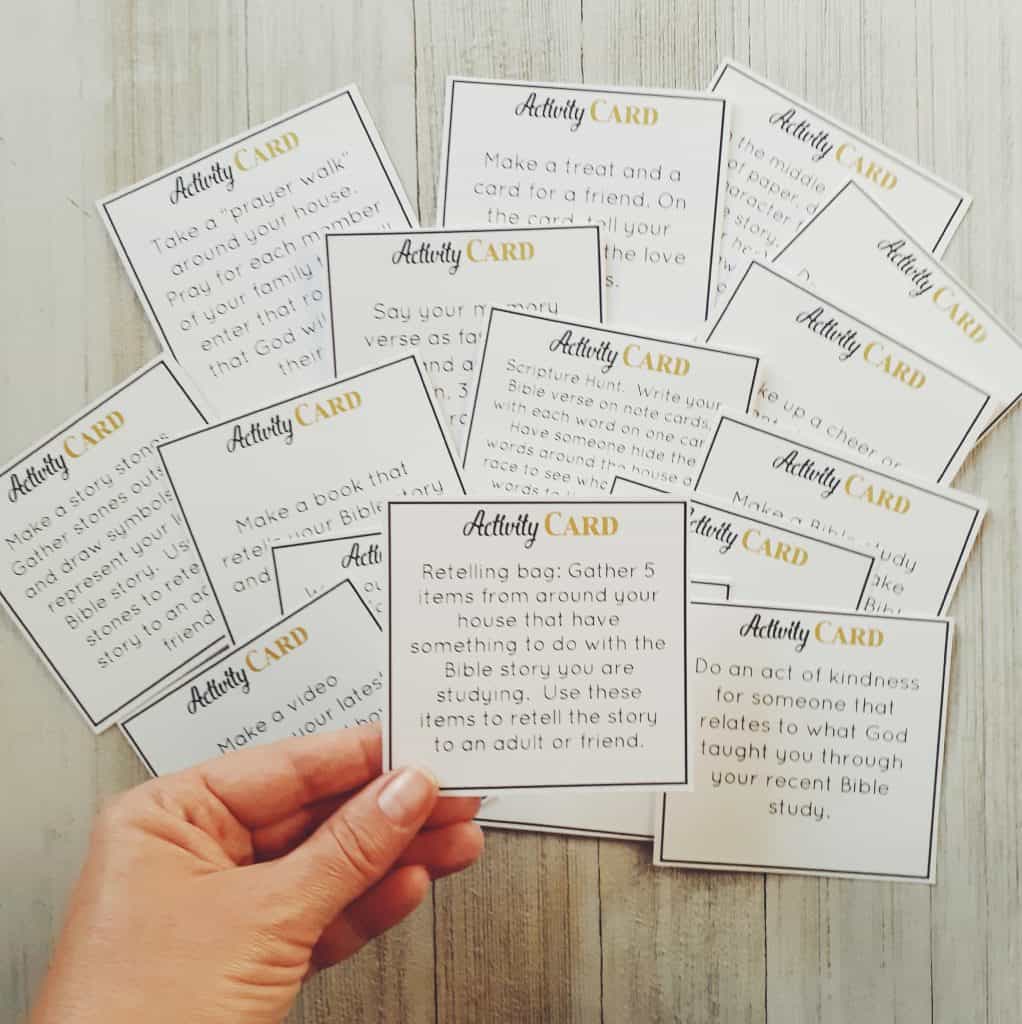 Activity CARD
Take a "prayer walk"
around your house.
Pray for each member
of your family
enter that
that God
their
Activity CARD
Make a treat and a
card for a friend. On
the card, tell your
the love
Activity CARD
the middle
of paper,
story.
Activity CARD
Activity CARD
up a cheer or
Activity CARD
Say your memory
verse as
and a
3
Activity CARD
Scripture Hunt. Write your
Bible verse on note cards,
with each word on one
Have someone hide the
words around the house
race to see who
words
Activity CARD
Make a story stones
Gather stones
and draw symbols
represent your
Bible story.
stones to
story to an
friend
Activity CARD
Make a book that
your Bible story
and
Activity CARD
Make a Bible study
Activity CARD
Activity
Activity CARD
Make a video
your
Activity CARD
Retelling bag: Gather 5
items from around your
house that have
something to do with the
Bible story you are
studying. Use these
items to retell the story
to an adult or friend.
Activity CARD
Do an act of kindness
for someone that
relates to what God
taught you through
your recent Bible
study.